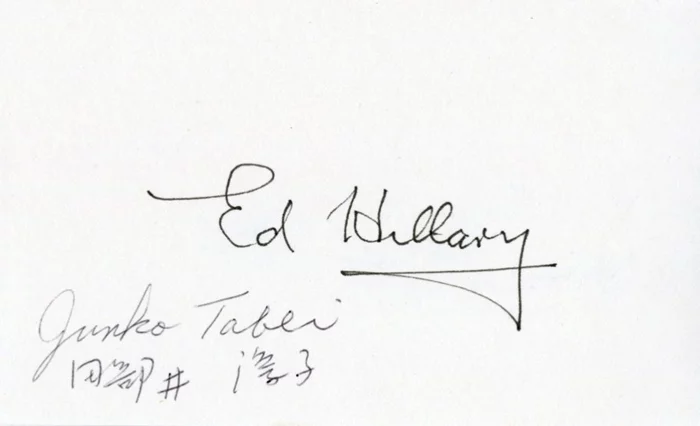 Ed Hillary
Junko Tabei
田部井 淳子